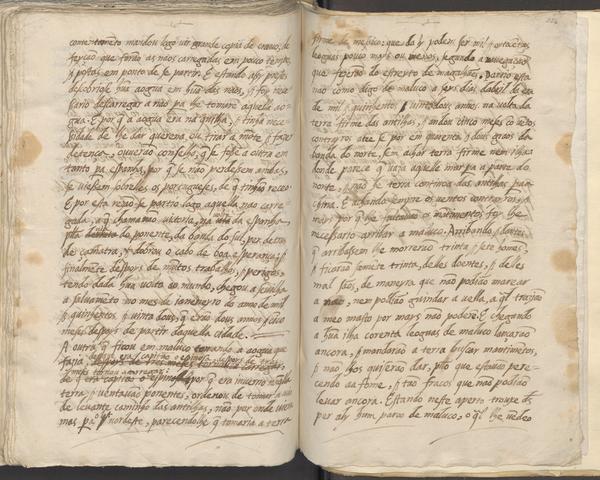 come tometo mandou logo uir grande copia de crauo; de
feyção que forão as naos carregadas em pouco tempo,
& postas em ponto de se partir. E estando assy prestes
descobrio se hũa aogua em hũa das naos, & foy neces
sario descarregar a não pa lhe tomare aquella ao
gua. E por q a aogua era na quilha, & tinha neces
sidade de lhe dar querena, ou tirar a mõte, & fazer
detença, ouuerão conselho, q se fosse a outra em
tanto pa espanha, por q se não perdesem ambas,
se uiessem sobrelles os portugueses, de q tinhão receo
E por esta rezão se partio logo aquella não carre
gada, a q chamauão uitoria, na uia da espanha
pla do ponente, da banda do sul, per detras
de çamatra, & dobrou o cabo de boa esperança; &
finalmete despoys de muytos trabalhos, & perigos,
tendo dada hũa uolta ao mundo, chegou a seuilha
a saluameto no mes de do anno de mil
& quinhentos & uinta dous, q erão dous annos & cinco
meses despoys de partir daquella cidade.
A outra, q ficou em maluco tomando a aogua que
fazia,
de q era capitão o espinosa, por q era inuerno naquella
terra & uentauão ponentes, ordenou de tomar a uia
de leuante caminho das antilhas, não por onde uiera
mas pa o nordeste, parecendolhe q tomaria a terra
firme de mexico: que da hy podem ser mil & oytocentas
leoguas pouco mays ou menos, segundo a nauegação
que fezerão do estreyto de magalhães. Partio esta
nao como digo de maluco a seys dias dabril da era
de mil & quinhentos & uintadous annos, na uolta da
terra firme das antilhas, & andou cinco meses co uetos
contrayros ate se por em quarenta & dous graos da
banda do norte, sem achar terra firme nem ilha
donde parece q uaza aquelle mar pa a parte do
norte, & não se terra continoa das antilhas pa a
china. E achando sempre os uentos contrayros, &
mays por q lhe faltauão os mantimentos foy lhe
necessario arribar a maluco. Arribando & dantes
q arribassem lhe morrerão trinta & sete homes,
& ficarão somete trinta, delles doentes, & delles
mal sãos, de maneyra que não podião marear
a nao, nem podião guindar a uella, a ql trazião
a meo masto por mays não poderē. E chegando
a hũa ilha corenta leoguas de maluco lançarão
ancora, & mandarão a terra buscar mantimetos,
& não lhos quiserão dar, plo que estauão pere-
cendo aa fome, & tão fracos que não podião
leuar ancora. Estando neste aperto trouxe ds
per ahy hum parao de maluco, o ql lhe uedeo